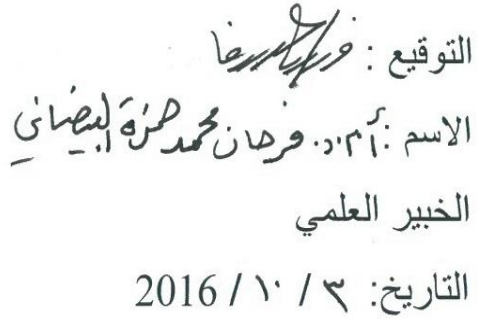 التوقيع :
الاسم : أ.م.د. فرحان محمد حمزة البيضاني
الخبير العلمي
التاريخ: ٣ / ١٠ / 2016